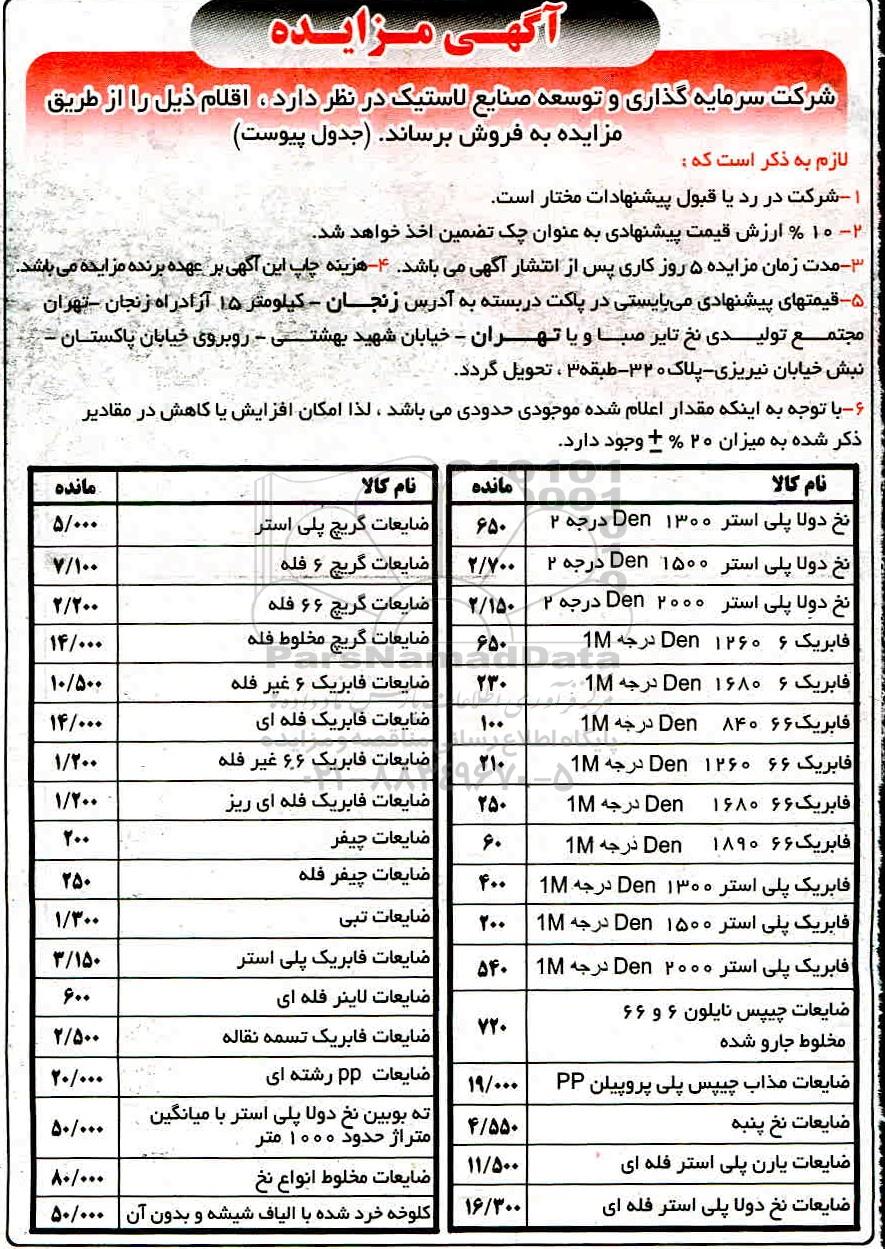 آگهی مزایده
شرکت سرمایه گذاری و توسعه صنایع لاستیک در نظر دارد ، اقلام ذیل را از طریق
مزایده به فروش برساند. (جدول پیوست)
لازم به ذکر است که :
۱-شرکت در رد یا قبول پیشنهادات مختار است.
۲- ۱۰ % ارزش قیمت پیشنهادی به عنوان چک تضمین اخذ خواهد شد.
۳-مدت زمان مزایده ۵ روز کاری پس از انتشار آگهی می باشد. ۴-هزینه چاپ این آگهی بر عهده برنده مزایده می باشد.
۵-قیمتهای پیشنهادی می‌بایستی در پاکت دربسته به آدرس زنجان - کیلومتر ۱۵ آزادراه زنجان -تهران
مجتمع تولیدی نخ تایر صبا و یا تهران - خیابان شهید بهشتی - روبروی خیابان پاکستان -
نبش خیابان نیریزی-پلاک۳۲۰-طبقه۳ ، تحویل گردد.
۶-با توجه به اینکه مقدار اعلام شده موجودی حدودی می باشد ، لذا امکان افزایش یا کاهش در مقادیر
ذکر شده به میزان ۲۰ % ± وجود دارد.
نام کالا مانده
نخ دولا پلی استر ۱۳۰۰ Den درجه ۲ ۶۵۰
نخ دولا پلی استر ۱۵۰۰ Den درجه ۲ ۲/۷۰۰
نخ دولا پلی استر ۲۰۰۰ Den درجه ۲ ۲/۱۵۰
فابریک ۶ ۱۲۶۰ Den درجه 1M ۶۵۰
فابریک ۶ ۱۶۸۰ Den درجه 1M ۲۳۰
فابریک۶۶ ۸۴۰ Den درجه 1M ۱۰۰
فابریک ۶۶ ۱۲۶۰ Den درجه 1M ۲۱۰
فابریک۶۶ ۱۶۸۰ Den درجه 1M ۲۵۰
فابریک۶۶ ۱۸۹۰ Den درجه 1M ۶۰
فابریک پلی استر ۱۳۰۰ Den درجه 1M ۴۰۰
فابریک پلی استر ۱۵۰۰ Den درجه 1M ۲۰۰
فابریک پلی استر ۲۰۰۰ Den درجه 1M ۵۴۰
ضایعات چیپس نایلون ۶ و ۶۶
مخلوط جارو شده ۷۲۰
ضایعات مذاب چیپس پلی پروپیلن PP ۱۹/۰۰۰
ضایعات نخ پنبه ۴/۵۵۰
ضایعات یارن پلی استر فله ای ۱۱/۵۰۰
ضایعات نخ دولا پلی استر فله ای ۱۶/۳۰۰
نام کالا مانده
ضایعات گریچ پلی استر ۵/۰۰۰
ضایعات گریچ ۶ فله ۷/۱۰۰
ضایعات گریچ ۶۶ فله ۲/۲۰۰
ضایعات گریچ مخلوط فله ۱۴/۰۰۰
ضایعات فابریک ۶ غیر فله ۱۰/۵۰۰
ضایعات فابریک فله ای ۱۴/۰۰۰
ضایعات فابریک ۶۶ غیر فله ۱/۲۰۰
ضایعات فابریک فله ای ریز ۱/۲۰۰
ضایعات چیفر ۲۰۰
ضایعات چیفر فله ۲۵۰
ضایعات تبی ۱/۳۰۰
ضایعات فابریک پلی استر ۳/۱۵۰
ضایعات لاینر فله ای ۶۰۰
ضایعات فابریک تسمه نقاله ۲/۵۰۰
ضایعات pp رشته ای ۲۰/۰۰۰
ته بوبین نخ دولا پلی استر با میانگین
متراژ حدود ۱۰۰۰ متر ۵۰/۰۰۰
ضایعات مخلوط انواع نخ ۸۰/۰۰۰
کلوخه خرد شده با الیاف شیشه و بدون آن ۵۰/۰۰۰
ParsNamadData
پایگاه اطلاع رسانی مناقصه و مزایده
۰۲۱-۸۸۳۴۹۶۷۰-۵